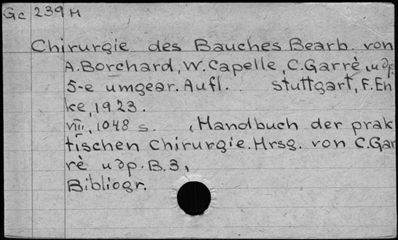 Gc 239 H
Chirurgie des Bauches Bearb. von
A. Borchard, W. Capelle, C. Garrè, и др.
5-e umgear. Aufl. Stuttgart, F. En
ke, 1923.
VIII, 1048 s. (Handbuch der prak
tischen Chirurgie. Hrsg. von C. Gar
rè и др. B. 3,
Bibliogr.